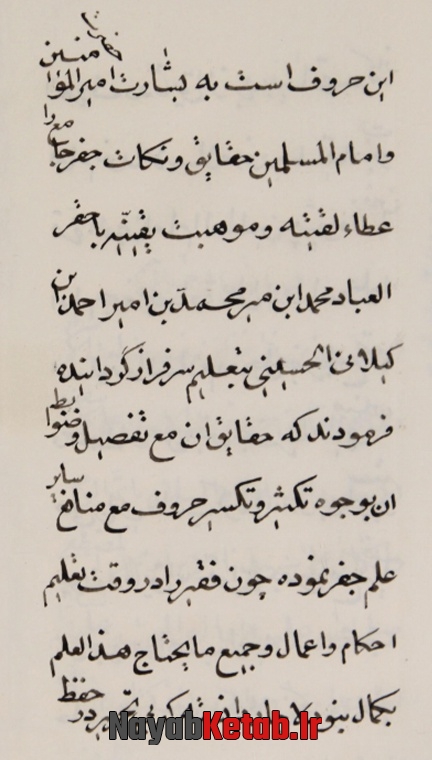 این حروف است به بشارت حضرت امیر المؤمنین
وامام المسلمین حقایق ونکات جفر جامع را
عطاء لقنیه وموهبت یقینیّه باحقر
العباد محمد ابن میر محمد بن امیر احمد ابن
کیلانی الحسینی بتعلیم سرفراز کردانیده
فرمودند که حقایق ان مع تفصیل وضوابط
ان بوجوه تکثیر وتکسیر حروف مع منافع سایر
علم جفر نموده چون فقیر را در وقت تعلیم
احکام واعمال وجمیع ما یحتاج هذا العلم
بکمال حفظ
NayabKetab.Ir